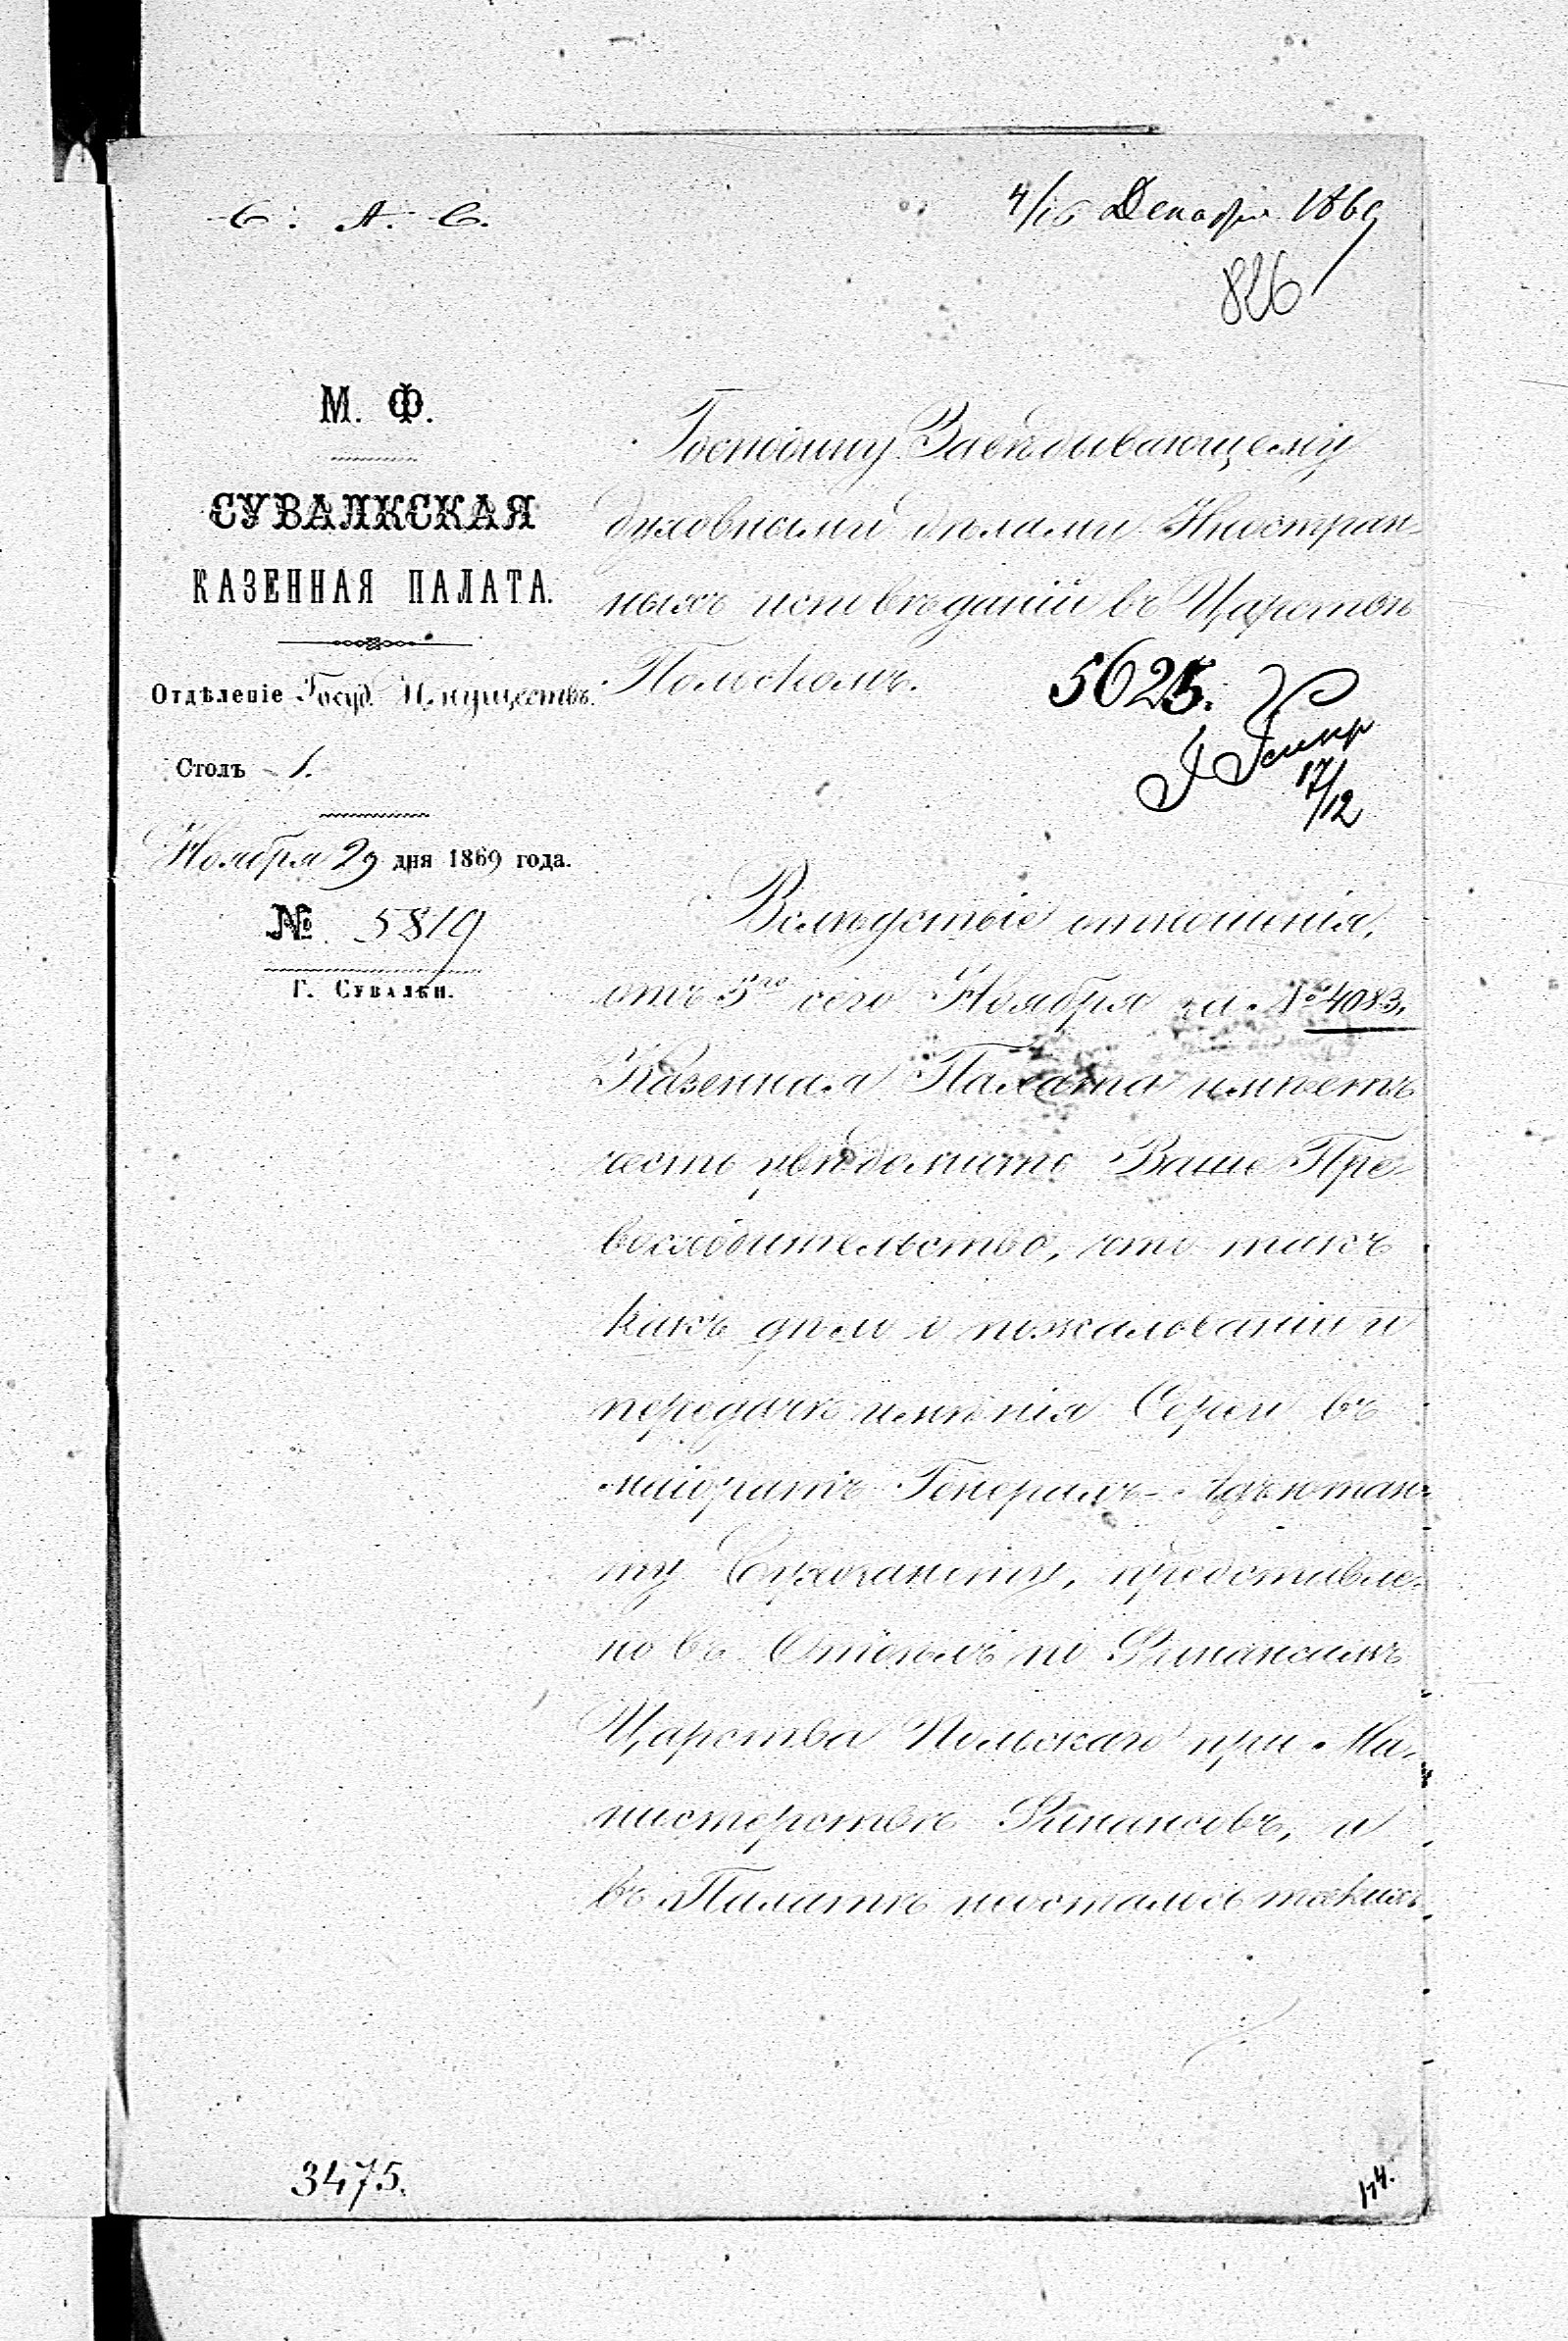 С. А. С.
4/16 Декабря 1869
826
М. Ф.
СУВАЛКСКАЯ
КАЗЕННАЯ ПАЛАТА.
Отдѣленіе Госуд. Имуществъ.
Столъ 1.
Ноября 29 дня 1869 года.
№ 5819
Г. Сувалки.
Господину Завѣдывающему
духовными дѣлами Иностран-
ныхъ исповѣданій въ Царствѣ
Польскомъ.
5625.
17/12
Вслѣдствіе отношенія,
отъ 5го сего Ноября за № 4083.
Казенная Палата имѣетъ
честь увѣдомить Ваше Пре-
восходительство, что такъ
какъ дѣло о пожалованіи и
передачѣ имѣнія Сереи въ
маіоратъ Генералъ-Адъютан-
ту Сухозанету, представле-
но въ Отдѣлъ по Финансамъ
Царства Польскаго при Ми-
нистерствѣ Финансовъ, и
въ Палатѣ неосталось такихъ
3475.
174.